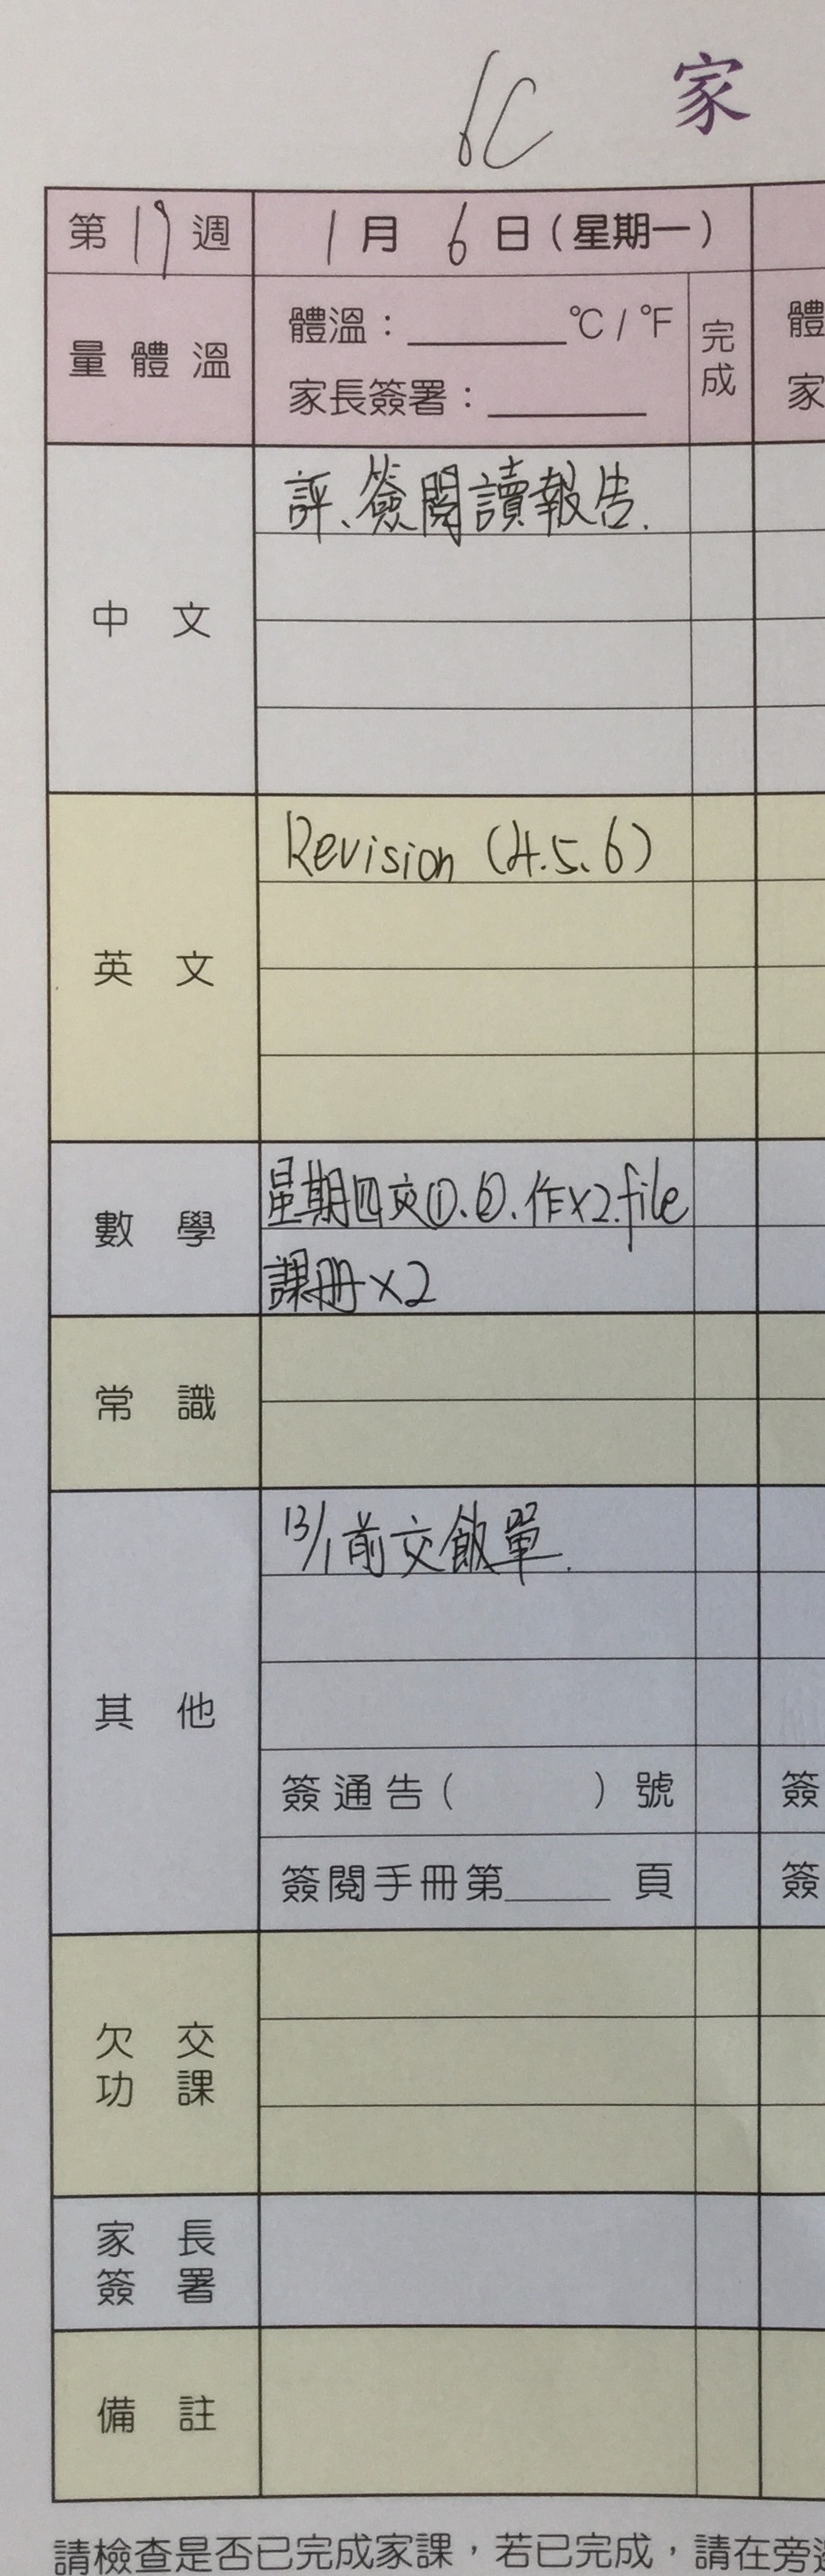 6C 家
第19週 1月6日(星期一)
量體溫 體溫:______°C/°F 完成 體
家長簽署:______ 家
中文 評、簽閱讀報告.
英文 Revision (4.5.6)
數學 星期四交①.②.作x2.file
課冊x2
常識
其他 13/1前交飯單.
簽通告( )號 簽
簽閱手冊第____頁 簽
欠交功課
家長簽署
備註
請檢查是否已完成家課,若已完成,請在旁